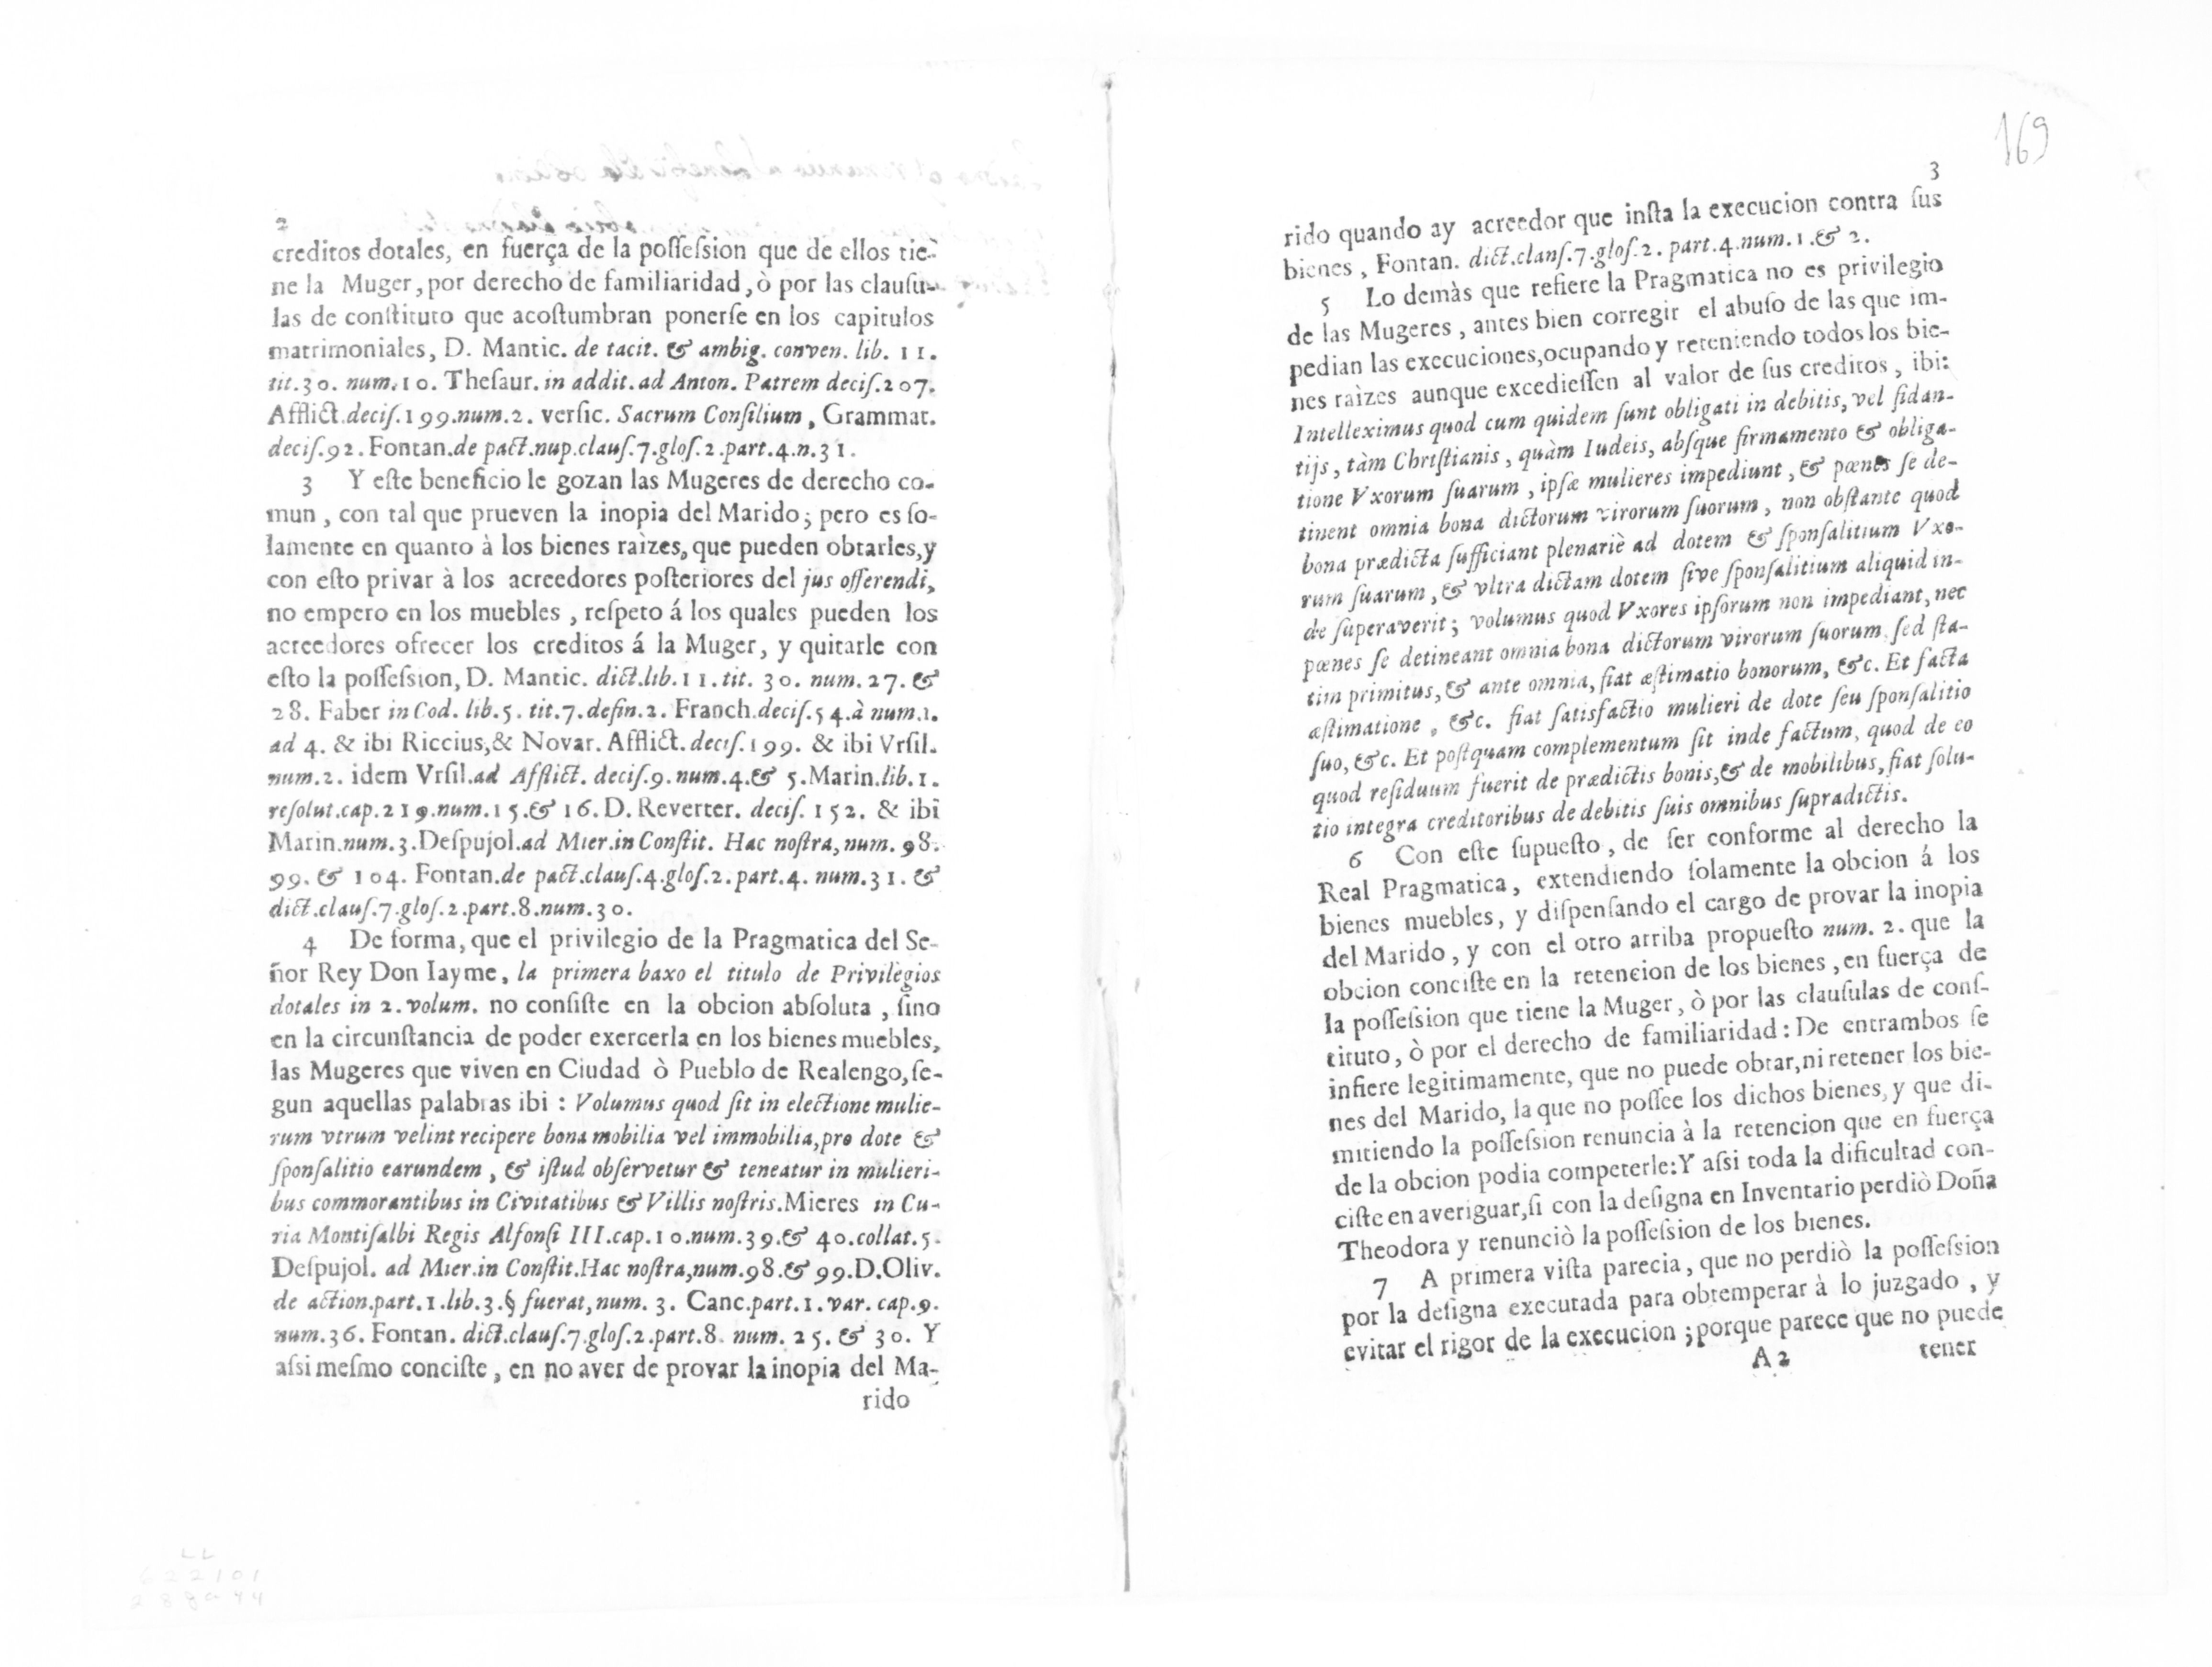 2
creditos dotales, en fuerça de la poſſeſsion que de ellos tie-
ne la Muger, por derecho de familiaridad, ò por las clauſu-
las de conſtituto que acoſtumbran ponerſe en los capitulos
matrimoniales, D. Mantic. de tacit. & ambig. conven. lib. 11.
tit.30. num.10. Theſaur. in addit. ad Anton. Patrem deciſ.207.
Afflict.deciſ.199.num.2. verſic. Sacrum Conſilium, Grammat.
deciſ.92. Fontan.de pact.nup.clauſ.7.gloſ.2.part.4.n.31.
3 Y eſte beneficio le gozan las Mugeres de derecho co-
mun, con tal que prueven la inopia del Marido; pero es ſo-
lamente en quanto à los bienes raìzes, que pueden obtarles, y
con eſto privar à los acreedores poſteriores del jus offerendi,
no empero en los muebles, reſpeto á los quales pueden los
acreedores ofrecer los creditos á la Muger, y quitarle con
eſto la poſſeſsion, D. Mantic. dict.lib.11.tit. 30. num.27. &
28. Faber in Cod. lib.5. tit.7.defin.2. Franch.deciſ.54.à num.1.
ad 4. & ibi Riccius,& Novar. Afflict.deciſ.199. & ibi Vrſil.
num.2. idem Vrſil.ad Afflict. deciſ.9.num.4.& 5.Marin.lib.1.
reſolut.cap.219.num.15.& 16.D. Reverter. deciſ. 152. & ibi
Marin.num.3.Deſpujol.ad Mier.in Conſtit. Hac noſtra,num.98.
99. & 104. Fontan.de pact.clauſ.4.gloſ.2.part.4. num.31. &
dict.clauſ.7.gloſ.2.part.8.num.30.
4 De forma, que el privilegio de la Pragmatica del Se-
ñor Rey Don Iayme, la primera baxo el titulo de Privilegios
dotales in 2. volum. no conſiſte en la obcion abſoluta, ſino
en la circunſtancia de poder exercerla en los bienes muebles,
las Mugeres que viven en Ciudad ò Pueblo de Realengo, ſe-
gun aquellas palabras ibi: Volumus quod ſit in electione mulie-
rum vtrum velint recipere bona mobilia vel immobilia,pro dote &
ſponſalitio earundem, & iſtud obſervetur & teneatur in mulieri-
bus commorantibus in Civitatibus & Villis noſtris. Mieres in Cu-
ria Montiſalbi Regis Alfonſi III.cap.10.num.39.& 40.collat.5.
Deſpujol. ad Mier.in Conſtit.Hac noſtra,num.98.& 99.D.Oliv.
de action.part.1.lib.3.§ fuerat,num. 3. Canc.part.1.var. cap.9.
num.36. Fontan. dict.clauſ.7.gloſ.2.part.8. num. 25. & 30. Y
aſsi meſmo conciſte, en no aver de provar la inopia del Ma-
rido
169
3
rido quando ay acreedor que inſta la execucion contra ſus
bienes, Fontan. dict.clauſ.7.gloſ.2. part.4.num.1.& 2.
5 Lo demàs que refiere la Pragmatica no es privilegio
de las Mugeres, antes bien corregir el abuſo de las que im-
pedian las execuciones,ocupando y reteniendo todos los bie-
nes raìzes aunque excedieſſen al valor de ſus creditos, ibi:
Intelleximus quod cum quidem ſunt obligati in debitis, vel fidan-
tijs, tàm Chriſtianis, quàm Iudeis, abſque firmamento & obliga-
tione Vxorum ſuarum, ipſæ mulieres impediunt, & pœnes ſe de-
tinent omnia bona dictorum virorum ſuorum, non obſtante quod
bona prædicta ſufficiant plenariè ad dotem & ſponſalitium Vxo-
rum ſuarum, & vltra dictam dotem ſive ſponſalitium aliquid in-
de ſuperaverit; volumus quod Vxores ipſorum non impediant, nec
pœnes ſe detineant omnia bona dictorum virorum ſuorum, ſed ſta-
tim primitus, & ante omnia, fiat æſtimatio bonorum, &c. Et facta
æſtimatione, &c. fiat ſatisfactio mulieri de dote ſeu ſponſalitio
ſuo, &c. Et poſtquam complementum ſit inde factum, quod de eo
quod reſiduum fuerit de prædictis bonis,& de mobilibus, fiat ſolu-
tio integra creditoribus de debitis ſuis omnibus ſupradictis.
6 Con eſte ſupueſto, de ſer conforme al derecho la
Real Pragmatica, extendiendo ſolamente la obcion á los
bienes muebles, y diſpenſando el cargo de provar la inopia
del Marido, y con el otro arriba propueſto num. 2. que la
obcion conciſte en la retencion de los bienes, en fuerça de
la poſſeſsion que tiene la Muger, ò por las clauſulas de conſ-
tituto, ò por el derecho de familiaridad: De entrambos ſe
infiere legitimamente, que no puede obtar,ni retener los bie-
nes del Marido, la que no poſſee los dichos bienes, y que di-
mitiendo la poſſeſsion renuncia à la retencion que en fuerça
de la obcion podia competerle: Y aſsi toda la dificultad con-
ciſte en averiguar, ſi con la deſigna en Inventario perdiò Doña
Theodora y renunciò la poſſeſsion de los bienes.
7 A primera viſta parecia, que no perdiò la poſſeſsion
por la deſigna executada para obtemperar à lo juzgado, y
evitar el rigor de la execucion; porque parece que no puede
A2 tener
LL
622101